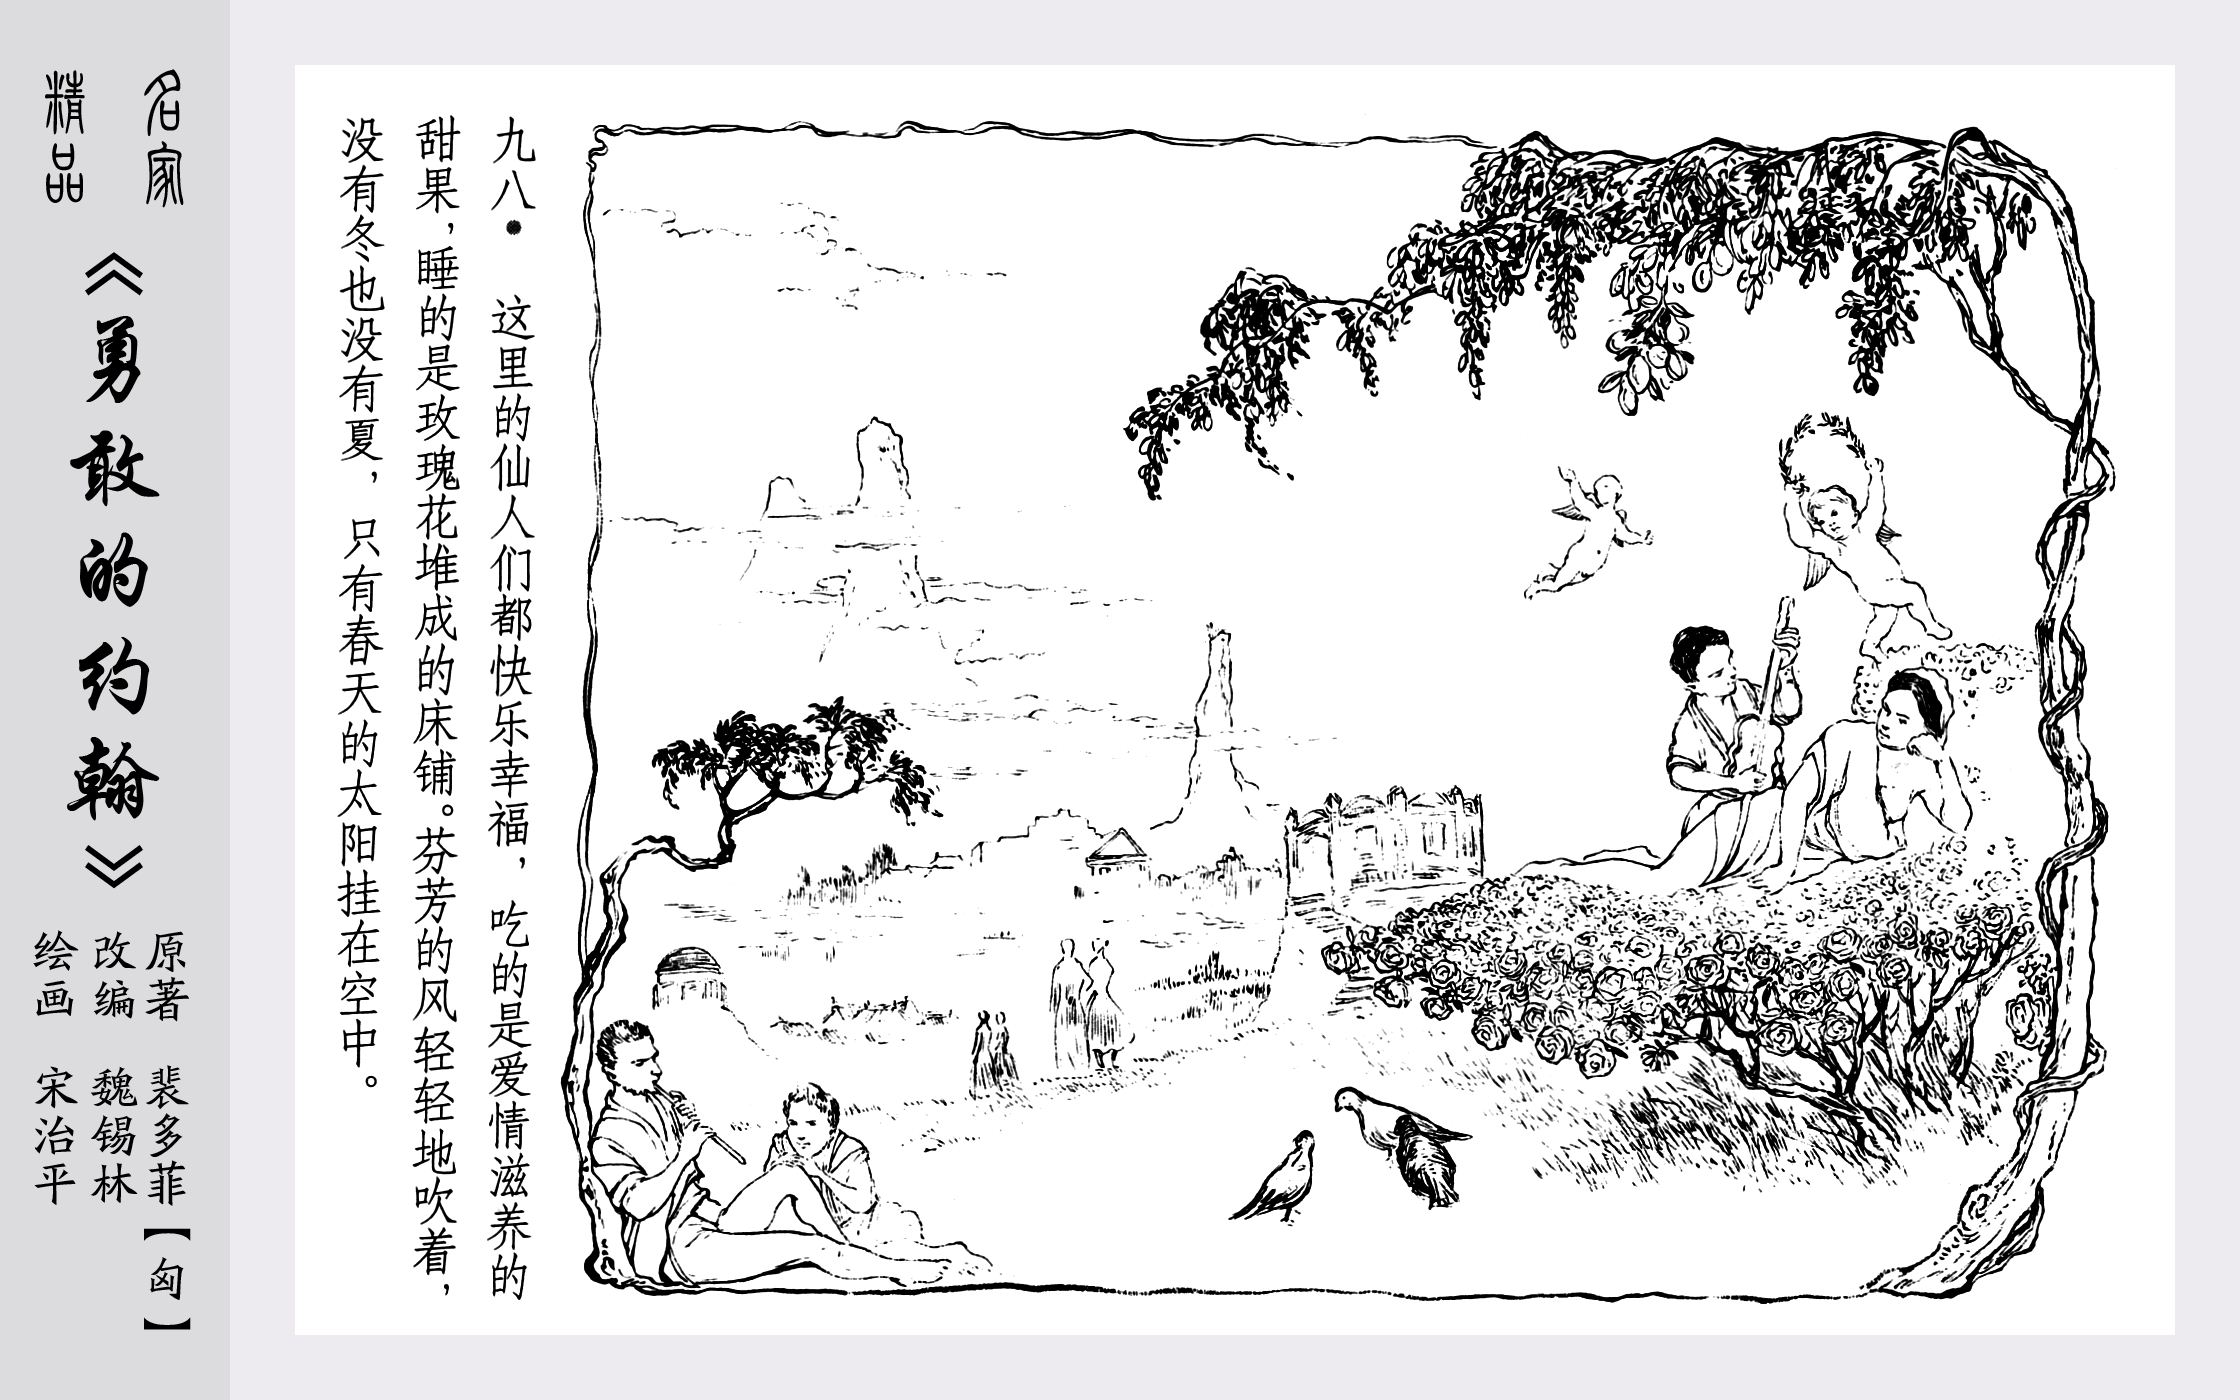 名家
精品
《勇敢的约翰》
原著 裴多菲【匈】
改编 魏锡林
绘画 宋治平
九八• 这里的仙人们都快乐幸福，吃的是爱情滋养的
甜果，睡的是玫瑰花堆成的床铺。芬芳的风轻轻地吹着，
没有冬也没有夏，只有春天的太阳挂在空中。